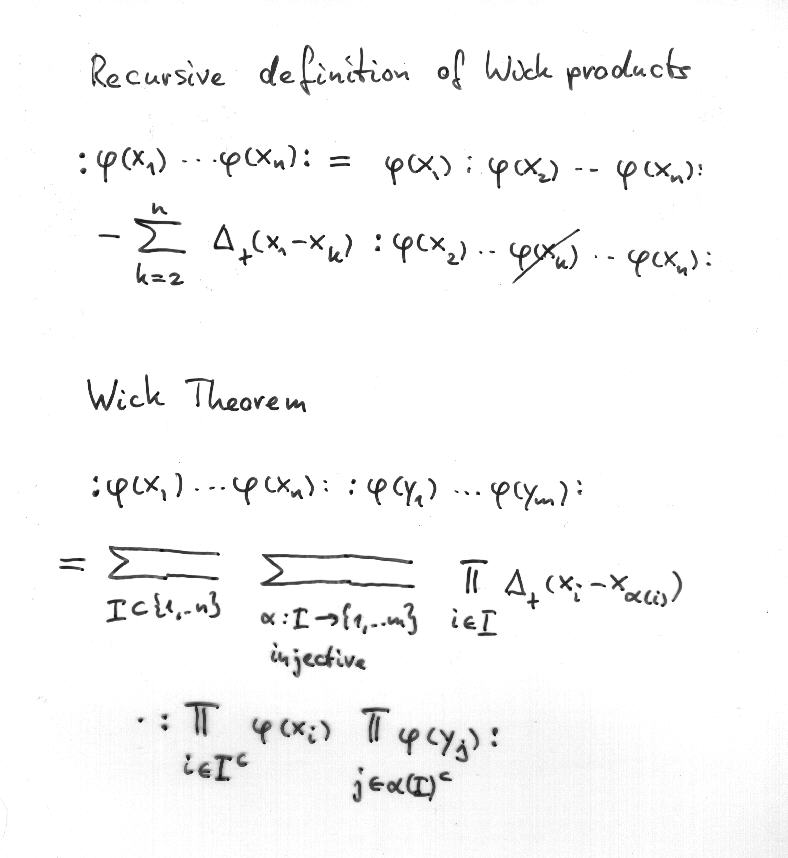 Recursive definition of Wick products
:φ(x₁) ··· φ(xₙ): = φ(x₁) : φ(x₂) ·· φ(xₙ):
− ∑ₖ₌₂ⁿ Δ₊(x₁−xₖ) :φ(x₂) ·· φ̸(̸x̸ₖ)̸ ·· φ(xₙ):
Wick Theorem
:φ(x₁) ... φ(xₙ): :φ(y₁) ... φ(yₘ):
= ∑ ∑ ∏ Δ₊(xᵢ−x_α(i))
I⊂{1,..n} α:I→{1,..m} i∈I
injective
· : ∏ φ(xᵢ) ∏ φ(yⱼ):
i∈Iᶜ j∈α(I)ᶜ